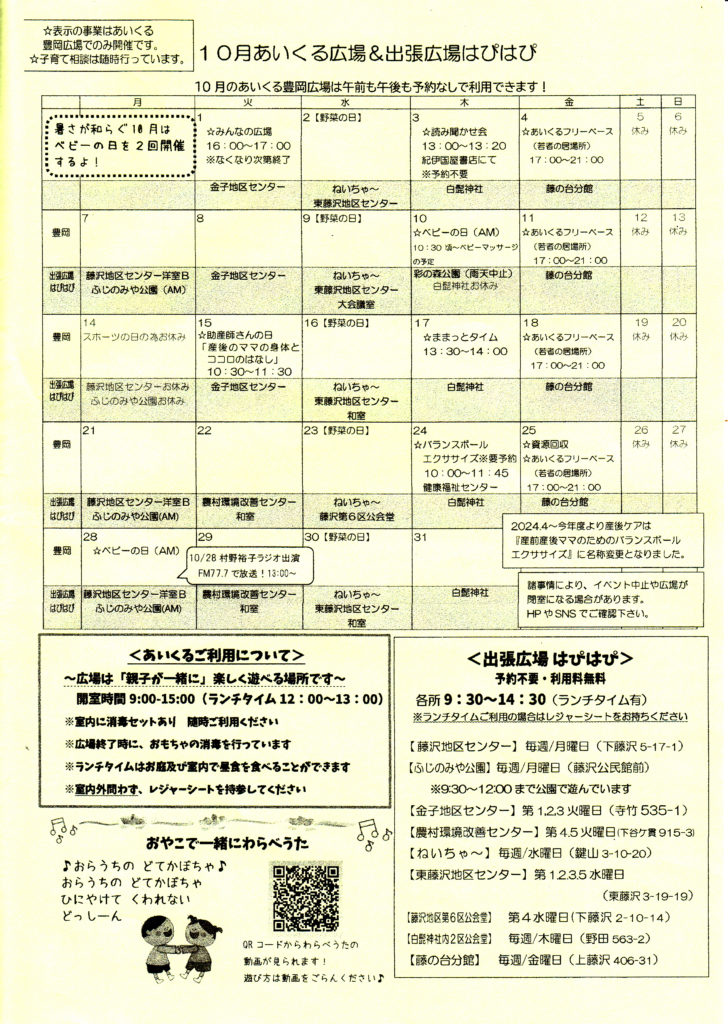 ☆表示の事業はあいくる
豊岡広場でのみ開催です。
☆子育て相談は随時行っています。
１０月あいくる広場＆出張広場はぴはぴ
10月のあいくる豊岡広場は午前も午後も予約なしで利用できます！
月 火 水 木 金 土 日
暑さが和らぐ10月は
ベビーの日を２回開催
するよ！
1
☆みんなの広場
16：00～17：00
※なくなり次第終了
2【野菜の日】
3
☆読み聞かせ会
13：00～13：20
紀伊国屋書店にて
※予約不要
4
☆あいくるフリーペース
（若者の居場所）
17：00～21：00
5
休み
6
休み
金子地区センター
ねいちゃ～
東藤沢地区センター
白髭神社
藤の台分館
豊岡
7
8
9【野菜の日】
10
☆ベビーの日（AM）
10：30 頃～ベビーマッサージ
の予定
11
☆あいくるフリーペース
（若者の居場所）
17：00～21：00
12
休み
13
休み
出張広場
はぴはぴ
藤沢地区センター洋室B
ふじのみや公園（AM）
金子地区センター
ねいちゃ～
東藤沢地区センター
大会議室
彩の森公園（雨天中止）
白髭神社お休み
藤の台分館
豊岡
14
スポーツの日の為お休み
15
☆助産師さんの日
「産後のママの身体と
ココロのはなし」
10：30～11：30
16【野菜の日】
17
☆ままっとタイム
13：30～14：00
18
☆あいくるフリーペース
（若者の居場所）
17：00～21：00
19
休み
20
休み
出張広場
はぴはぴ
藤沢地区センターお休み
ふじのみや公園お休み
金子地区センター
ねいちゃ～
東藤沢地区センター
和室
白髭神社
藤の台分館
豊岡
21
22
23【野菜の日】
24
☆バランスボール
エクササイズ※要予約
10：00～11：45
健康福祉センター
25
☆資源回収
☆あいくるフリーペース
（若者の居場所）
17：00～21：00
26
休み
27
休み
出張広場
はぴはぴ
藤沢地区センター洋室B
ふじのみや公園(AM)
農村環境改善センター
和室
ねいちゃ～
藤沢第６区公会堂
白髭神社
藤の台分館
豊岡
28
☆ベビーの日（AM）
29
10/28 村野裕子ラジオ出演
FM77.7で放送！13:00～
30【野菜の日】
31
2024.4～今年度より産後ケアは
『産前産後ママのためのバランスボール
エクササイズ』に名称変更となりました。
出張広場
はぴはぴ
藤沢地区センター洋室B
ふじのみや公園(AM)
農村環境改善センター
和室
ねいちゃ～
東藤沢地区センター
和室
白髭神社
諸事情により、イベント中止や広場が
閉室になる場合があります。
HPやSNSでご確認下さい。
＜あいくるご利用について＞
～広場は「親子が一緒に」楽しく遊べる場所です～
開室時間 9:00-15:00（ランチタイム 12：00～13：00）
※室内に消毒セットあり 随時ご利用ください
※広場終了時に、おもちゃの消毒を行っています
※ランチタイムはお庭及び室内で昼食を食べることができます
※室内外問わず、レジャーシートを持参してください
おやこで一緒にわらべうた
♪おらうちの どてかぼちゃ♪
おらうちの どてかぼちゃ
ひにやけて くわれない
どっしーん
QRコードからわらべうたの
動画が見られます！
遊び方は動画をごらんください♪
＜出張広場 はぴはぴ＞
予約不要・利用料無料
各所 9：30～14：30（ランチタイム有）
※ランチタイムご利用の場合はレジャーシートをお持ちください
【藤沢地区センター】毎週/月曜日（下藤沢 5-17-1）
【ふじのみや公園】毎週/月曜日（藤沢公民館前）
※9:30～12:00 まで公園で遊んでいます
【金子地区センター】第 1,2,3 火曜日（寺竹 535-1）
【農村環境改善センター】第 4.5 火曜日(下谷ケ貫 915-3)
【ねいちゃ～】毎週/水曜日（鍵山 3-10-20）
【東藤沢地区センター】第 1.2.3.5 水曜日
（東藤沢 3-19-19）
【藤沢地区第６区公会堂】 第４水曜日(下藤沢 2-10-14)
【白髭神社内２区公会堂】 毎週/木曜日（野田 563-2）
【藤の台分館】 毎週/金曜日（上藤沢 406-31）